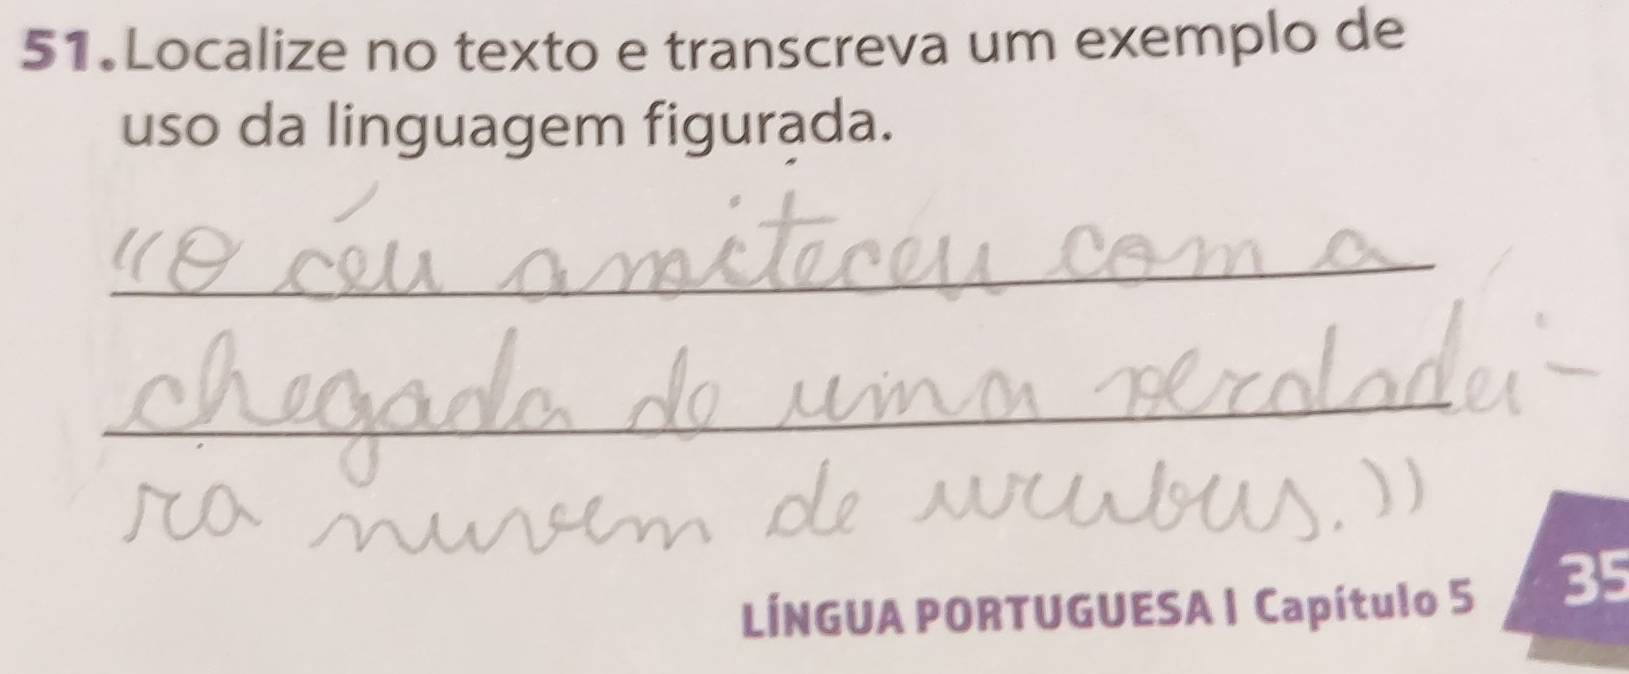 51. Localize no texto e transcreva um exemplo de
uso da linguagem figurada.
"O céu anoiteceu com a
chegada de uma verdadei-
ra nuvem de urubus."
LÍNGUA PORTUGUESA I Capítulo 5 35